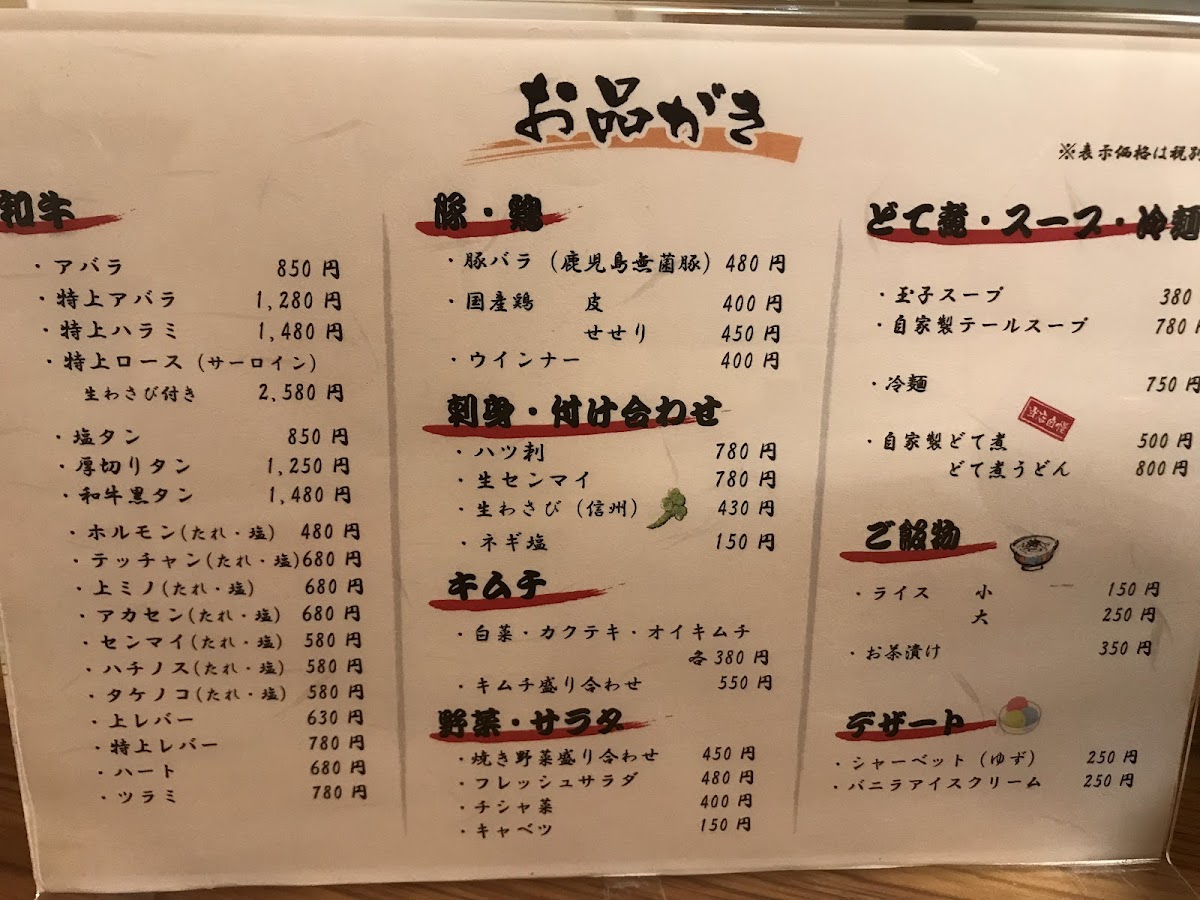 お品がき
※表示価格は税別
和牛
・アバラ 850 円
・特上アバラ 1,280 円
・特上ハラミ 1,480 円
・特上ロース (サーロイン)
生わさび付き 2,580 円
・塩タン 850 円
・厚切りタン 1,250 円
・和牛黒タン 1,480 円
・ホルモン(たれ・塩) 480 円
・テッチャン(たれ・塩)680 円
・上ミノ(たれ・塩) 680 円
・アカセン(たれ・塩) 680 円
・センマイ(たれ・塩) 580 円
・ハチノス(たれ・塩) 580 円
・タケノコ(たれ・塩) 580 円
・上レバー 630 円
・特上レバー 780 円
・ハート 680 円
・ツラミ 780 円
豚・鶏
・豚バラ (鹿児島無菌豚) 480 円
・国産鶏 皮 400 円
せせり 450 円
・ウインナー 400 円
刺身・付け合わせ
・ハツ刺 780 円
・生センマイ 780 円
・生わさび (信州) 430 円
・ネギ塩 150 円
キムチ
・白菜・カクテキ・オイキムチ
各 380 円
・キムチ盛り合わせ 550 円
野菜・サラダ
・焼き野菜盛り合わせ 450 円
・フレッシュサラダ 480 円
・チシャ菜 400 円
・キャベツ 150 円
どて煮・スープ・冷麺
・玉子スープ 380
・自家製テールスープ 780 円
・冷麺 750 円
・自家製どて煮 500 円
どて煮うどん 800 円
ご飯物
・ライス 小 150 円
大 250 円
・お茶漬け 350 円
デザート
・シャーベット (ゆず) 250 円
・バニラアイスクリーム 250 円